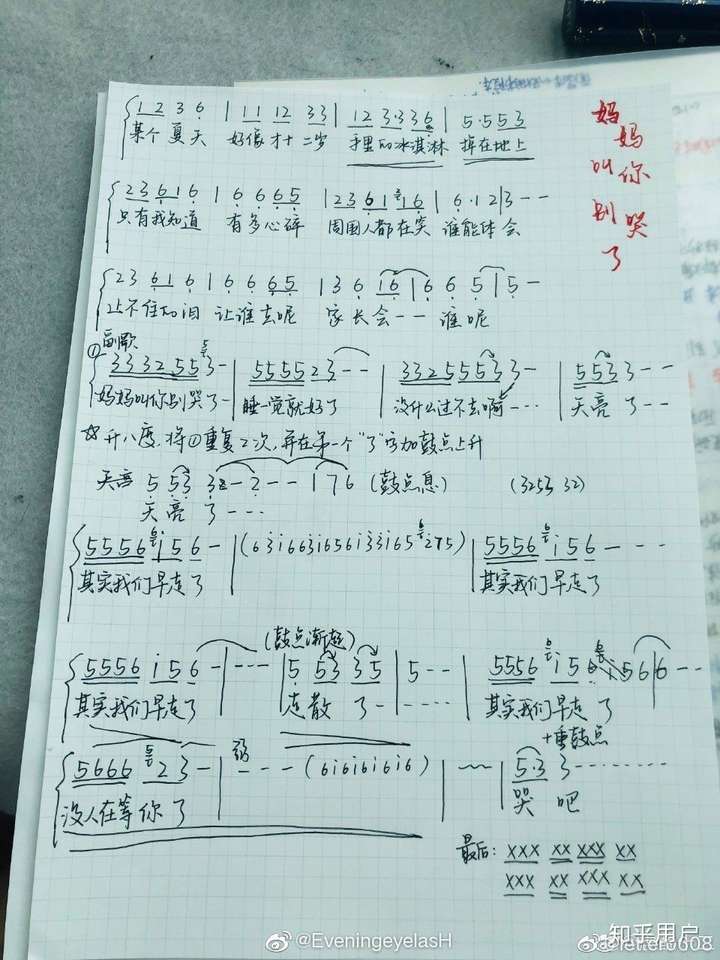 妈妈叫你别哭了
1 2 3 6 | 1 1 1 2 3 3 | 1 2 3·3 3 6 | 5·5 5 3
某个夏天 好像才十二岁 手里的冰淇淋 掉在地上
2 3 6 1 6 | 6 6 6 5 | 2 3 6 1 1 6 | 6·1 2 | 3 - -
只有我知道 有多心碎 周围人都在笑 谁能体会
2 3 6 1 6 | 6 6 6 5 | 3 6 1 6 | 6 6 5 | 5 -
止不住的泪 让谁去呢 家长会 - - 谁呢
副歌
① 3 3 3 2 5 5 3 - | 5 5 5 5 2 3 - - | 3 3 2 5 5 5 3 3 - | 5 5 3 3 - -
妈妈叫你别哭了 - 睡一觉就好了 没什么过不去啊 - - - 天亮了 - - -
☆升八度,将①重复2次,并在第一个"了"字加鼓点上升
5 5 3 3 - 2 - - - 1 7 6 (鼓点息) (3253 32)
天亮 了 - - -
5 5 5 6 i 5 6 - | (6 3 i 6 6 3 i 6 5 6 i 3 3 i 6 5 i 2 7 5) | 5 5 5 6 i 5 6 - - - -
其实我们早走了 其实我们早走了
(鼓点渐起)
5 5 5 6 i 5 6 - | - - - - | 5 5 3 3 5 | 5 - - | 5 5 5 6 i 5 6 i 5 6 | 6 - - -
其实我们早走了 走散 了 - - - - - 其实我们早走了
+重鼓点
5 6 6 6 2 3 - | - - - - (6 i 6 i 6 i 6 i 6) | 5·3 3 - - - - - - - -
弱
没人在等你了 哭 吧
最后: XXX XX XXX XX
XXX XX XXX XX
@EveningeyelasH
知乎用户
@letter0608